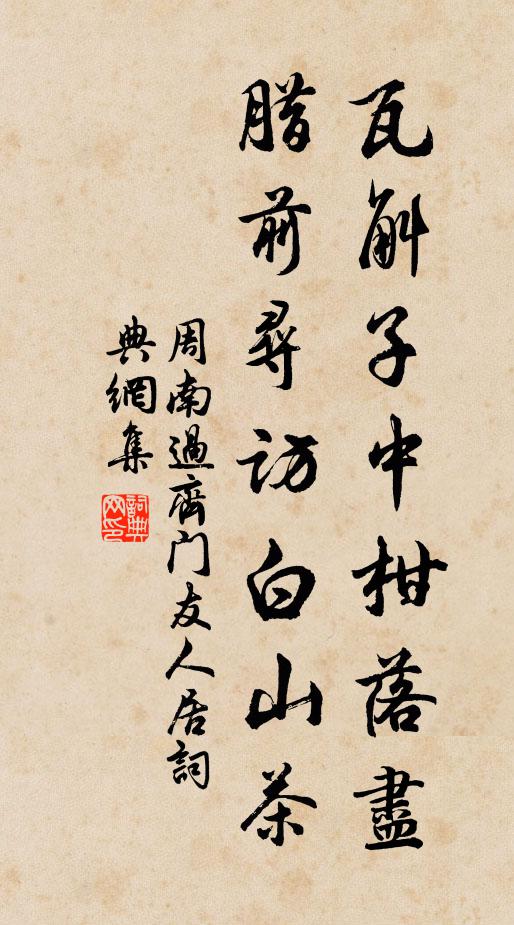 瓦斛子中柑落盡
腊前尋訪白山茶
周南過齊門友人居詞
典網集
詞典网印